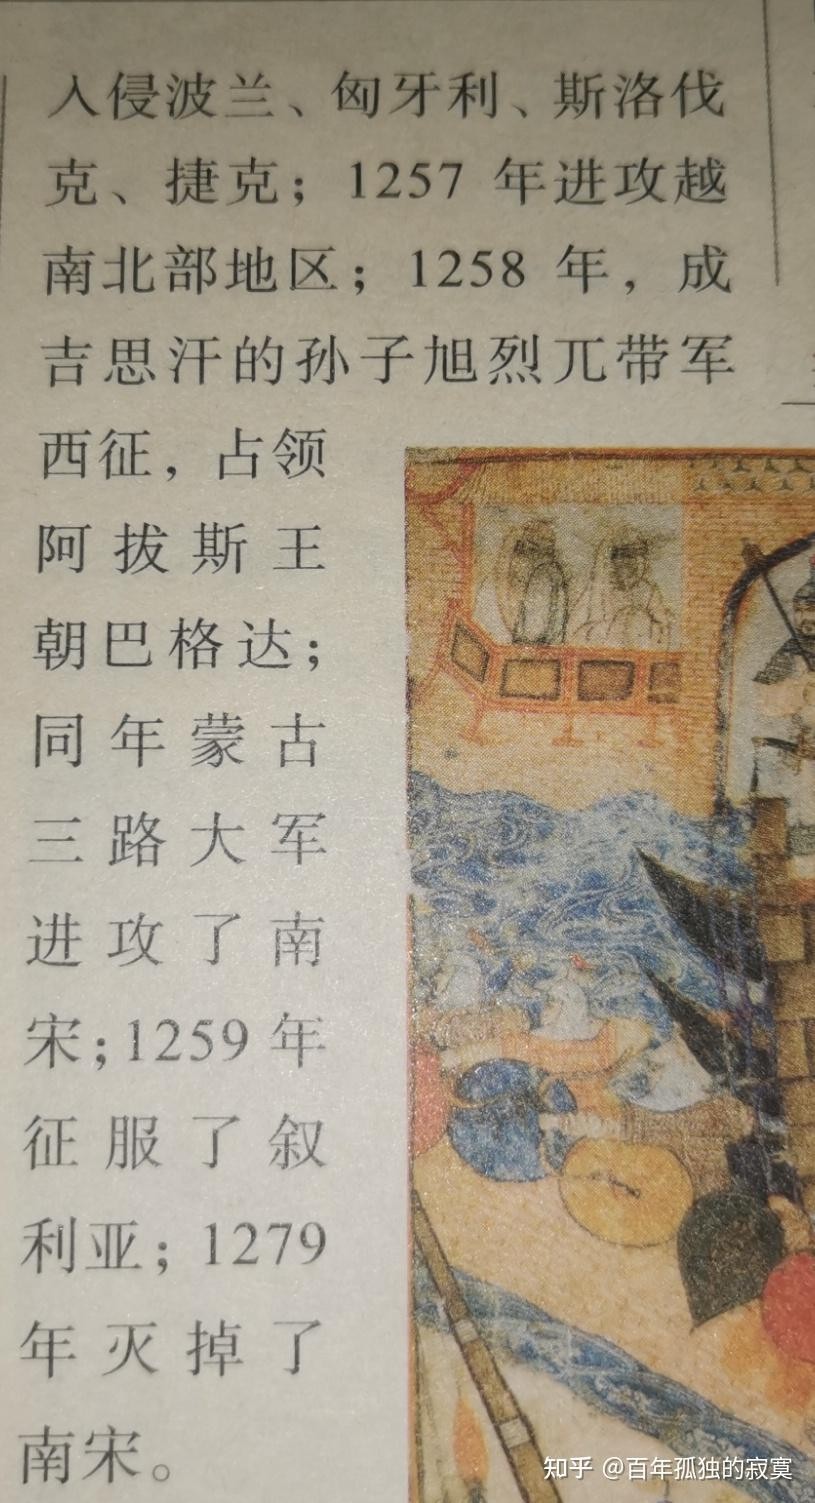 入侵波兰、匈牙利、斯洛伐
克、捷克；1257 年进攻越
南北部地区；1258 年，成
吉思汗的孙子旭烈兀带军
西征，占领
阿拔斯王
朝巴格达；
同年蒙古
三路大军
进攻了南
宋；1259 年
征服了叙
利亚；1279
年灭掉了
南宋。
知乎 @百年孤独的寂寞